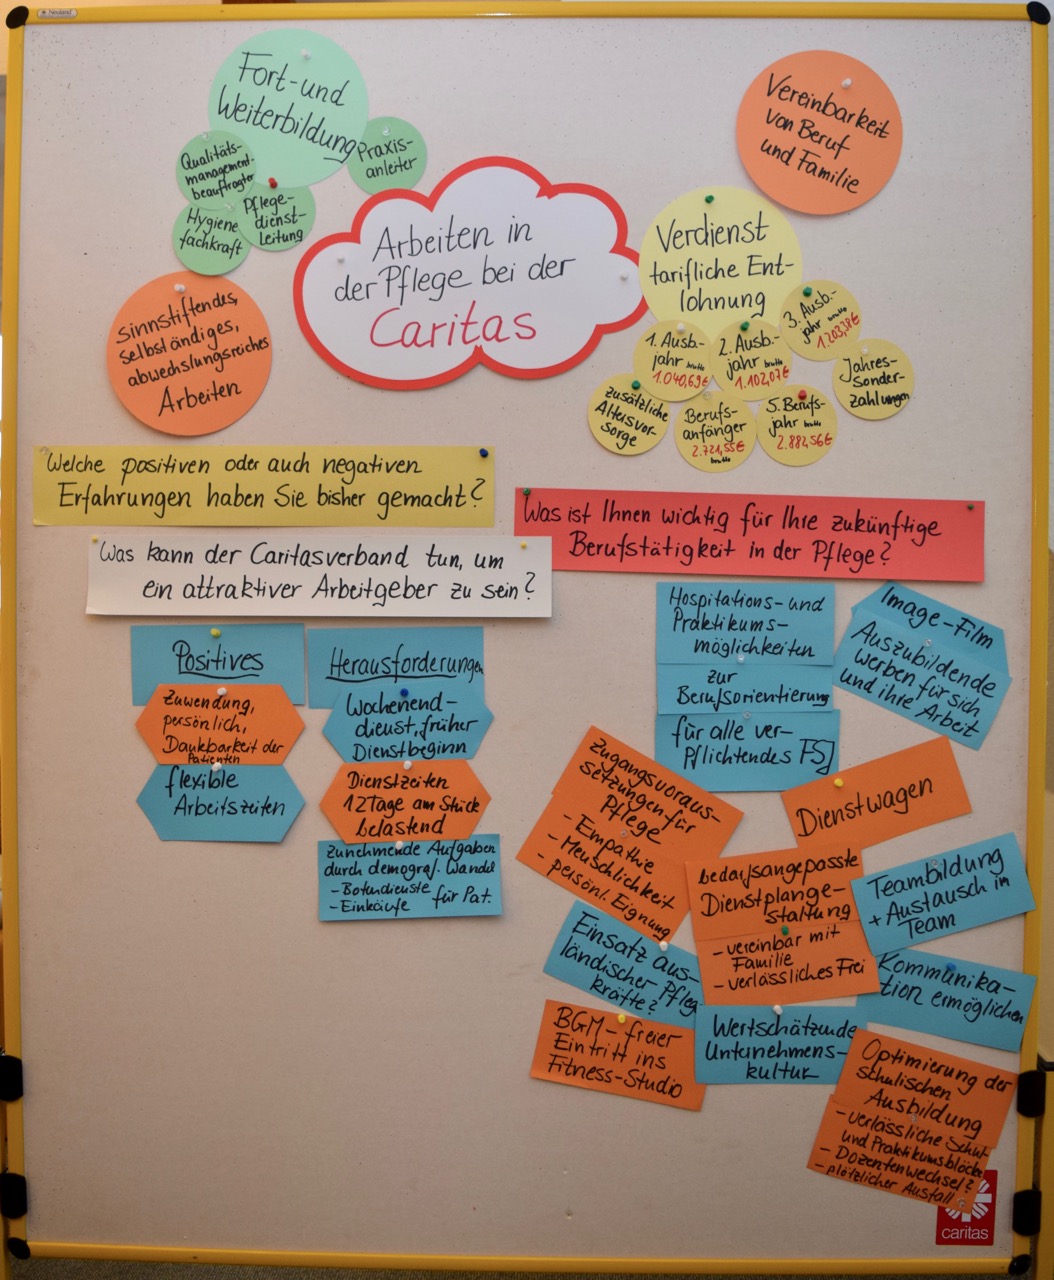 Neuland
Fort- und
Weiterbildung
Qualitäts-
management-
beauftragter
Praxis-
anleiter
Pflege-
dienst-
Leitung
Hygiene
fachkraft
Vereinbarkeit
von Beruf
und Familie
Arbeiten in
der Pflege bei der
Caritas
Verdienst
tarifliche Ent-
lohnung
1. Ausb.-
jahr brutto
1.040,69€
2. Ausb.-
jahr brutto
1.102,07€
3. Ausb.-
jahr brutto
1.203,38€
Jahres-
Sonder-
zahlungen
zusätzliche
Altersvor-
sorge
Berufs-
anfänger
2.721,55€
brutto
5. Berufs-
jahr brutto
2.882,56€
sinnstiftendes,
selbständiges,
abwechslungsreiches
Arbeiten
Welche positiven oder auch negativen
Erfahrungen haben Sie bisher gemacht?
Was ist Ihnen wichtig für Ihre zukünftige
Berufstätigkeit in der Pflege?
Was kann der Caritasverband tun, um
ein attraktiver Arbeitgeber zu sein?
Positives
Zuwendung,
persönlich,
Dankbarkeit der
Patienten
flexible
Arbeitszeiten
Herausforderungen
Wochenend-
dienst, früher
Dienstbeginn
Dienstzeiten
12 Tage am Stück
belastend
Zunehmende Aufgaben
durch demograf. Wandel
- Botendienste für Pat.
- Einkäufe
Hospitations- und
Praktikums-
möglichkeiten
zur
Berufsorientierung
für alle ver-
pflichtendes FSJ
Image-Film
Auszubildende
werben für sich
und ihre Arbeit
Zugangsvoraus-
setzungen für
Pflege
- Empathie
- Menschlichkeit
- persönl. Eignung
Dienstwagen
bedarfsangepasste
Dienstplange-
staltung
- vereinbar mit
Familie
- verlässliches Frei
Teambildung
+ Austausch in
Team
Einsatz aus-
ländischer Pflege
kräfte?
Kommunika-
tion ermöglichen
BGM - freier
Eintritt ins
Fitness-Studio
Wertschätzende
Unternehmens-
kultur
Optimierung der
schulischen
Ausbildung
- verlässliche Schul-
und Praktikumsblöcke
- Dozentenwechsel?
- plötzlicher Ausfall
caritas